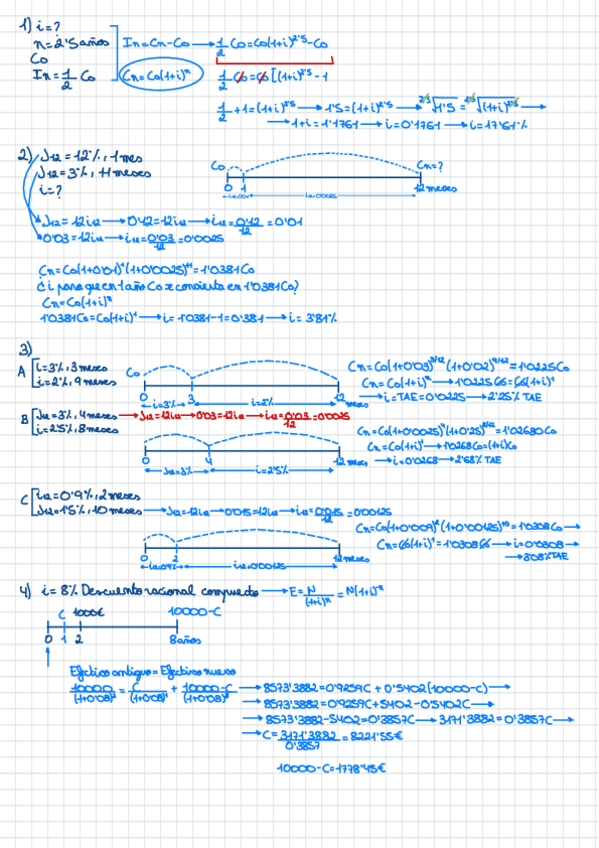 1) i=?
n=2'5 años
Co
In=1/2 Co
In=Cn-Co → 1/2 Co=Co(1+i)^2'5-Co
Cn=Co(1+i)^n
1/2 Co=Co[(1+i)^2'5-1
1/2+1=(1+i)^2'5 → 1'5=(1+i)^2'5 → ^2'5√1'5=^2'5√(1+i)^2'5 →
→ 1+i=1'1761 → i=0'1761 → i=17'61%
2) J12=12%, 1 mes
J12=3%, 11 meses
i=?
Co Cn=?
0 1 12 meses
i12=0'01 i12=0'0025
J12=12i12 → 0'12=12i12 → i12=0'12/12=0'01
0'03=12i12 → i12=0'03/12=0'0025
Cn=Co(1+0'01)^1(1+0'0025)^11=1'0381Co
¿i para que en 1 año Co se convierta en 1'0381Co?
Cn=Co(1+i)^n
1'0381Co=Co(1+i)^1 → i=1'0381-1=0'381 → i=3'81%
3)
A [i=3%, 3 meses
i=2%, 9 meses
Co
0 3 12 meses
i=3% i=2%
Cn=Co(1+0'03)^3/12(1+0'02)^9/12=1'0225Co
Cn=Co(1+i)^n → 1'0225Co=Co(1+i)^1
→ i=TAE=0'0225 → 2'25% TAE
B [J12=3%, 4 meses → J12=12i12 → 0'03=12i12 → i12=0'03/12=0'0025
i=2'5%, 8 meses
0 4 12 meses
J12=3% i=2'5%
Cn=Co(1+0'0025)^4(1+0'25)^8/12=1'0268Co
Cn=Co(1+i)^1 → 1'0268Co=(1+i)Co
→ i=0'0268 → 2'68% TAE
C [i12=0'9%, 2 meses
J12=1'5%, 10 meses → J12=12i12 → 0'015=12i12 → i12=0'015/12=0'00125
0 2 12 meses
i12=0'9% i12=0'00125
Cn=Co(1+0'009)^2(1+0'00125)^10=1'0308Co →
Cn=Co(1+i)^1=1'0308Co → i=0'0308 →
→ 3'08% TAE
4) i=8% Descuento racional compuesto → E=N/(1+i)^n=N(1+i)^n
C 1000€ 10000-C
0 1 2 8 años
Efectivo antiguo=Efectivo nuevo
10000/(1+0'08)^2=C/(1+0'08)^1+10000-C/(1+0'08)^8 → 8573'3882=0'9259C+0'5402(10000-C) →
→ 8573'3882=0'9259C+5402-0'5402C →
→ 8573'3882-5402=0'3857C → 3171'3882=0'3857C →
→ C=3171'3882/0'3857=8221'55€
10000-C=1778'45€